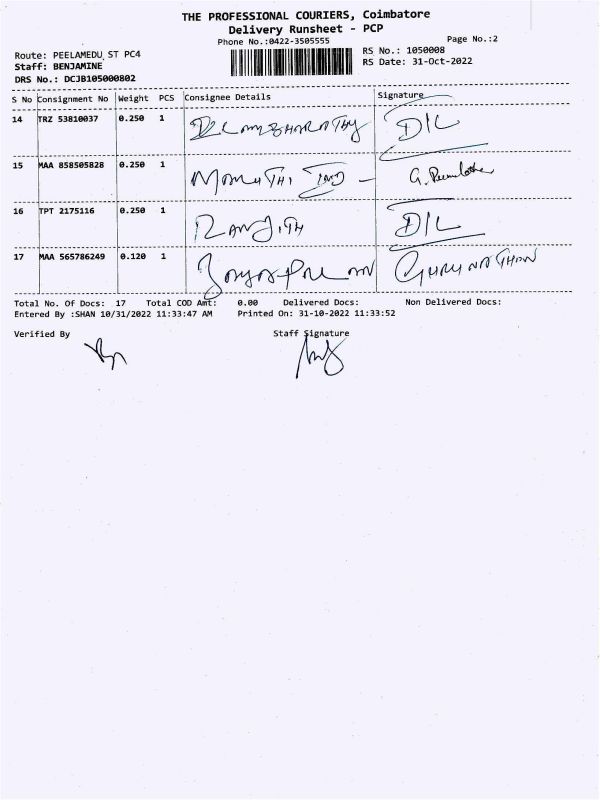 THE PROFESSIONAL COURIERS, Coimbatore
Delivery Runsheet - PCP
Phone No.:0422-3505555
Page No.:2
Route: PEELAMEDU ST PC4
RS No.: 1050008
Staff: BENJAMINE
RS Date: 31-Oct-2022
DRS No.: DCJB105000802
S No Consignment No Weight PCS Consignee Details Signature
14 TRZ 53810037 0.250 1 D/L
15 MAA 858505828 0.250 1 MARUTHI IND -
16 TPT 2175116 0.250 1 RANJITH D/L
17 MAA 565786249 0.120 1 GURUNATHAN
Total No. Of Docs: 17 Total COD Amt: 0.00 Delivered Docs: Non Delivered Docs:
Entered By :SHAN 10/31/2022 11:33:47 AM Printed On: 31-10-2022 11:33:52
Verified By Staff Signature